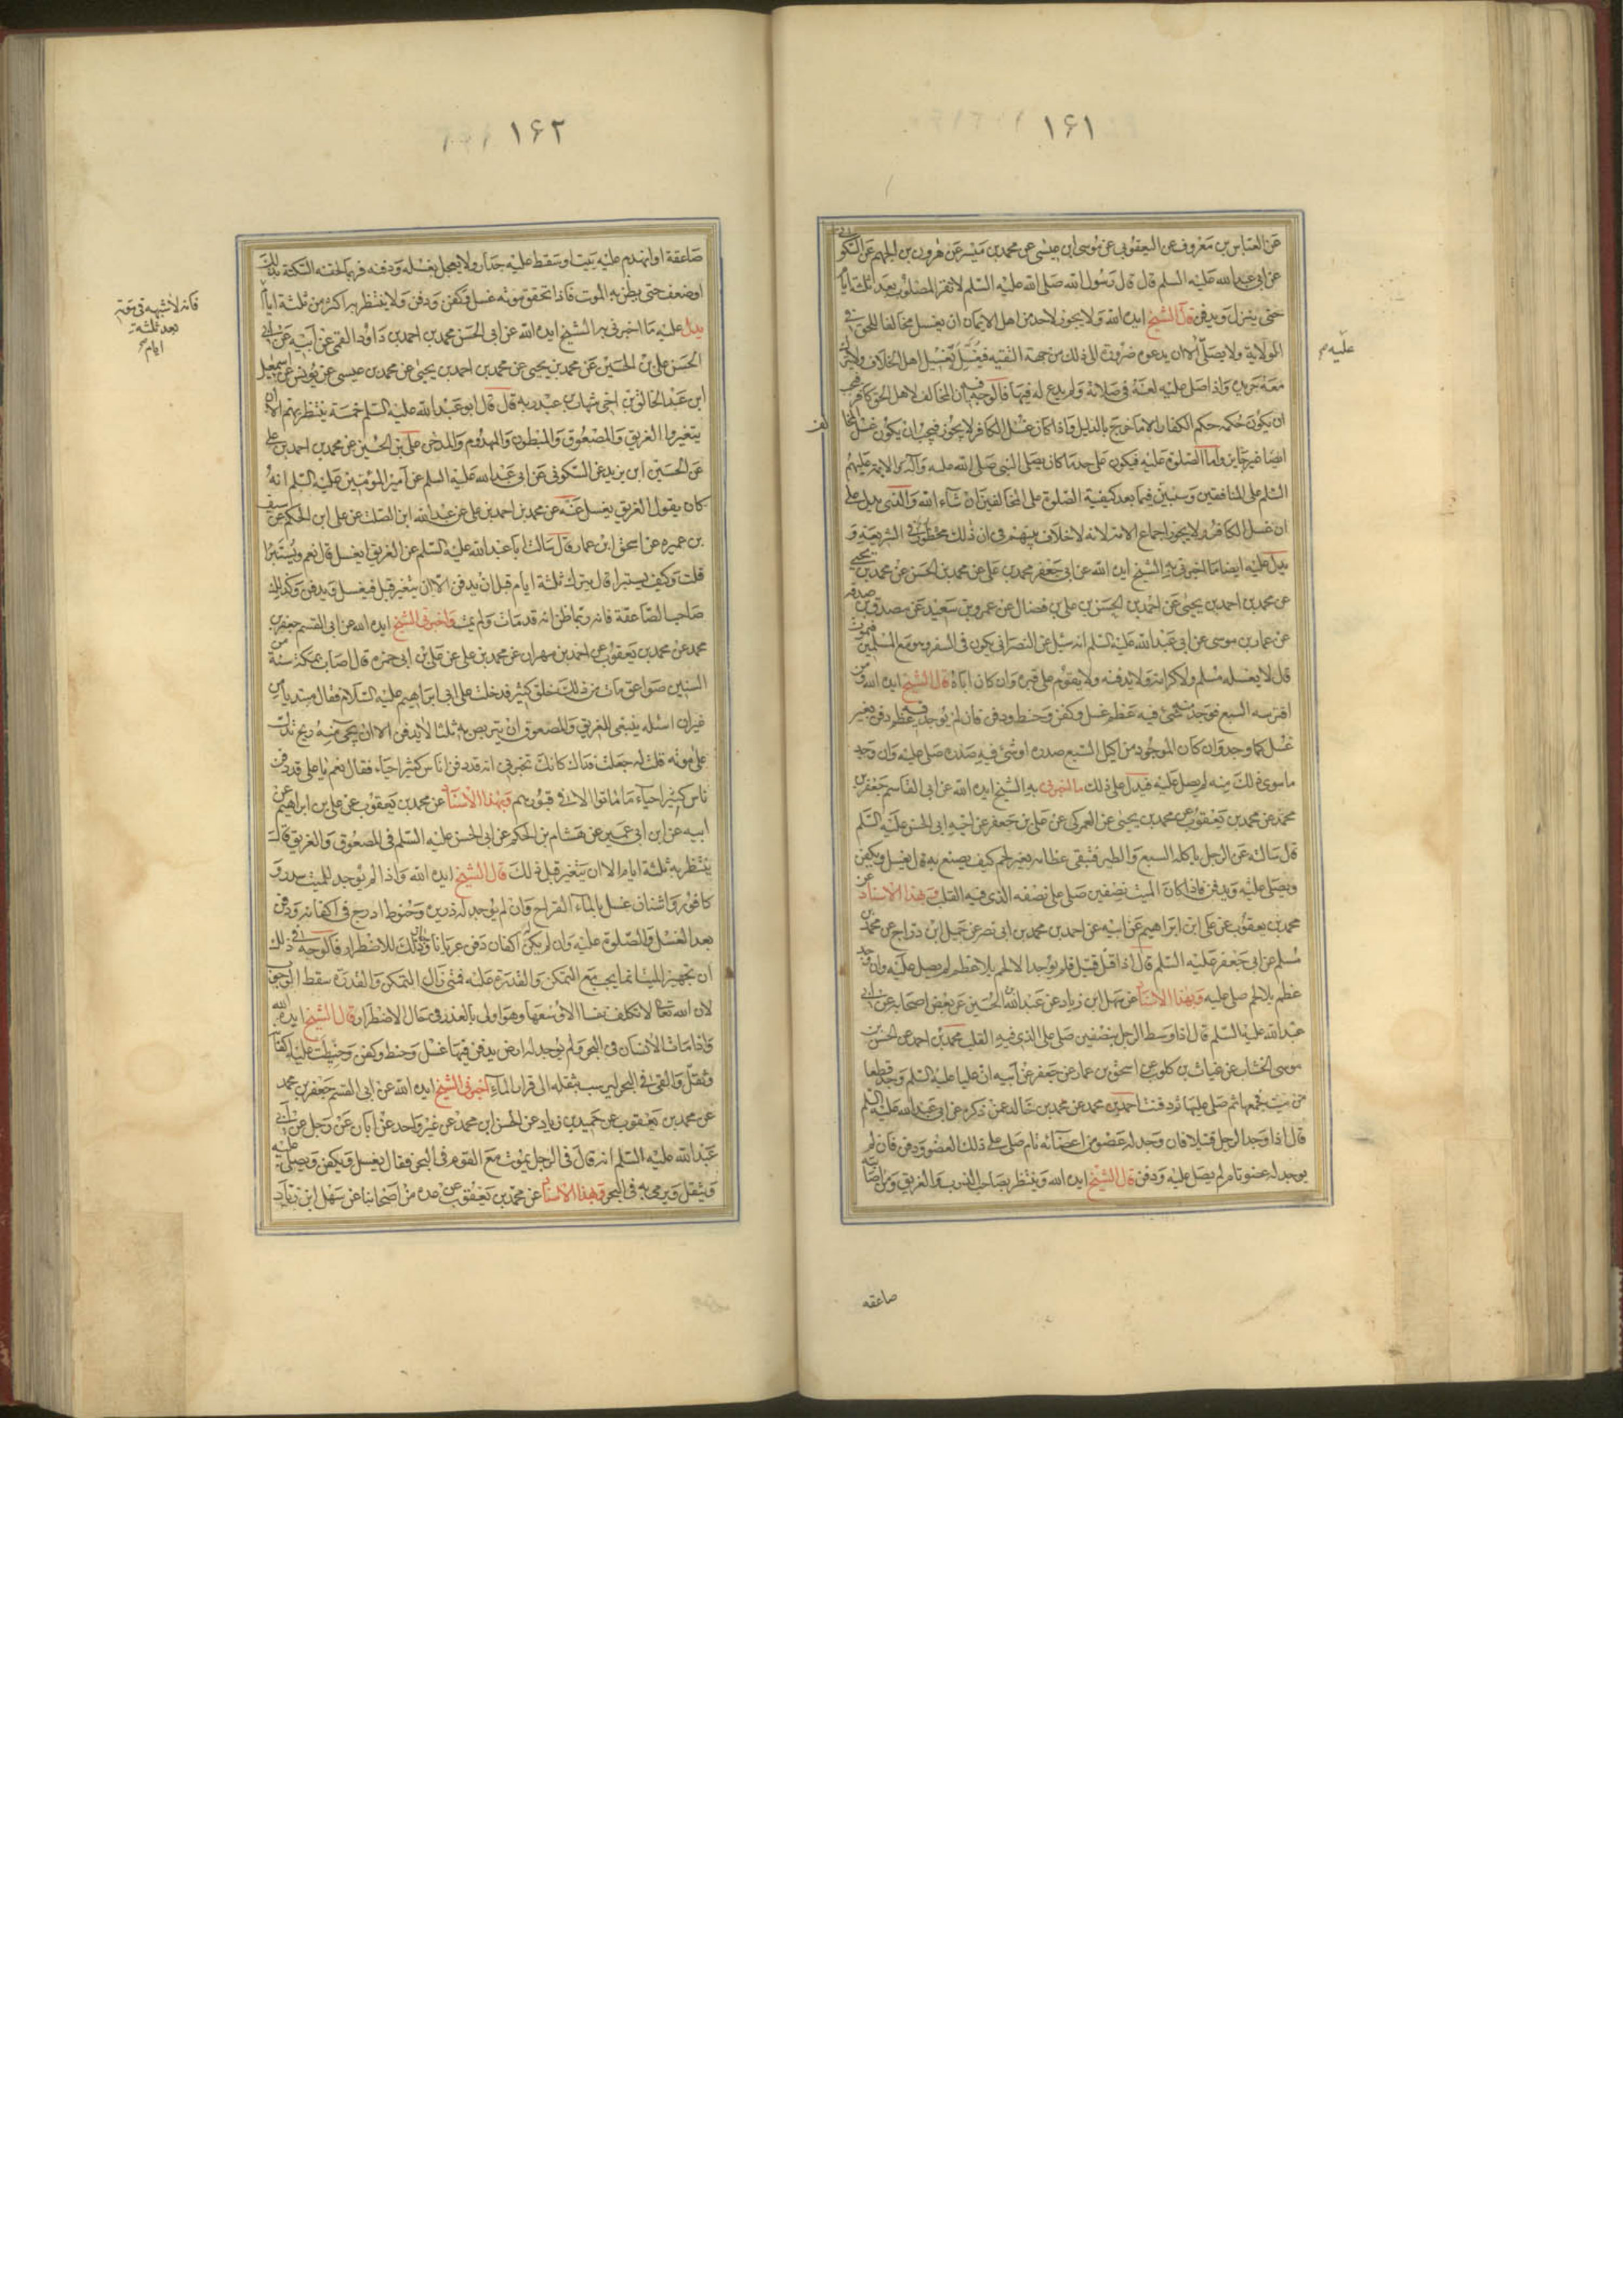 ۱۶۱
عن العباس بن معروف عن اليعقوبى عن موسى ابن عيسى عن محمد بن ميسر عن هرون بن الجهم عن السكونى
عن ابى عبد الله عليه السلم قال قال رسول الله صلى الله عليه السلم لا تقر المصلوب بعد ثلثة ايام
حتى ينزل ويدفن قال الشيخ ايده الله ولا يجوز لاحد من اهل الايمان ان يغسل مخالفا للحق فى
الولاية ولا يصلى الا ان يدعوه ضرورة الى ذلك من جهة التقية فيغسل تغسيل اهل الخلاف ولا يترك
معه جريدة واذا صلى عليه لعنه فى صلاته ولم يدع له فيها فالوجه فيه ان المخالف لاهل الحق كافر فيجب
ان يكون حكمه حكم الكفار الا ما خرج بالدليل واذا كان غسل الكافر لا يجوز فيجب ان يكون غسل المخالف
ايضا غير جايز واما الصلوة عليه فيكون على حد ما كان يصلى النبى صلى الله عليه وآله والايمة عليهم
السلم على المنافقين وسنبين فيما بعد كيفية الصلوة على المخالفين ان شاء الله والذى يدل على
ان غسل الكافر لا يجوز اجماع الامة لانه لا خلاف بينهم فى ان ذلك محظور فى الشريعة و
يدل عليه ايضا ما اخبرنى به الشيخ ايده الله عن ابى جعفر محمد بن على عن محمد بن الحسن عن محمد بن يحيى
عن محمد بن احمد بن يحيى عن احمد بن الحسن بن على بن فضال عن عمرو بن سعيد عن مصدق بن صدقه
عن عمار بن موسى عن ابى عبد الله عليه السلم انه سئل عن النصرانى يكون فى السفر وهو مع المسلمين فيموت
قال لا يغسله مسلم ولا كرامة ولا يدفنه ولا يقوم على قبره وان كان اباه قال الشيخ ايده الله ومن
افترسه السبع فوجد منه شئ فيه عظم غسل وكفن وحنط ودفن فان لم يوجد فيه عظم دفن بغير
غسل كما وجد وان كان الموجود من اكيل السبع صدره او شئ فيه صدره صلى عليه وان وجد
ما سوى ذلك منه لم يصل عليه فيدل على ذلك ما اخبرنى به الشيخ ايده الله عن ابى القاسم جعفر بن
محمد عن محمد بن يعقوب عن محمد بن يحيى عن العمركى عن على بن جعفر عن اخيه ابى الحسن عليه السلم
قال سالته عن الرجل ياكله السبع والطير فتبقى عظامه بغير لحم كيف يصنع به قال يغسل ويكفن
ويصلى عليه ويدفن فاذا كان الميت نصفين صلى على نصفه الذى فيه القلب وبهذا الاسناد عن
محمد بن يعقوب عن على ابن ابراهيم عن ابيه عن احمد بن محمد بن ابى نصر عن جميل ابن دراج عن محمد بن
مسلم عن ابى جعفر عليه السلم قال اذا قتل قتيل فلم يوجد الا لحم بلا عظم لم يصل عليه وان وجد
عظم بلا لحم صلى عليه وبهذا الاسناد عن سهل ابن زياد عن عبد الله بن الحسين عن بعض اصحابه عن ابى
عبد الله عليه السلم قال اذا وسط الرجل بنصفين صلى على الذى فيه القلب محمد بن احمد عن الحسن بن
موسى الخشاب عن غياث بن كلوب عن اسحق بن عمار عن جعفر عن ابيه ان عليا عليه السلم وجد قطعا
من ميت فجمعها ثم صلى عليها ثم دفنت احمد بن محمد عن محمد بن خالد عمن ذكره عن ابى عبد الله عليه السلم
قال اذا وجد الرجل قتيلا فان وجد له عضو من اعضائه تام صلى على ذلك العضو ودفن فان لم
يوجد له عضو تام لم يصل عليه ودفن قال الشيخ ايده الله وينتظر بصاحب الذرب والغريق ومن اصابته
عليه م
صاعقه
۱۶۲
صاعقة او انهدم عليه بيت او سقط عليه جدار ولا يعجل بغسله ودفنه فربما لحقته السكتة بذلك
او ضعف حتى يظن به الموت فاذا تحقق موته غسل وكفن ودفن ولا ينتظر به اكثر من ثلثة ايام
يدل عليه ما اخبرنى به الشيخ ايده الله عن ابى الحسن محمد بن احمد بن داود القمى عن ابيه عن ابى
الحسن على بن الحسين عن محمد بن يحيى عن محمد بن احمد بن يحيى عن محمد بن عيسى عن يونس عن اسمعيل
ابن عبد الخالق بن اخى شهاب بن عبد ربه قال قال ابو عبد الله عليه السلم خمسة ينتظر بهم الا ان
يتغيروا الغريق والمصعوق والمبطون والمهدوم والمدخن على بن الحسين عن محمد بن احمد بن على
عن الحسين ابن يزيد عن السكونى عن ابى عبد الله عليه السلم عن امير المؤمنين عليه السلم انه
كان يقول الغريق يغسل عنه عن محمد بن احمد بن على عن عبد الله ابن الصلت عن على ابن الحكم عن سيف
بن عميره عن اسحق ابن عمار قال سالت ابا عبد الله عليه السلم عن الغريق ايغسل قال نعم ويستبرا
قلت وكيف يستبرا قال يترك ثلثة ايام قبل ان يدفن الا ان يتغير قبل فيغسل ويدفن وكذلك
صاحب الصاعقة فانه ربما ظن انه قد مات ولم يمت واخبرنى الشيخ ايده الله عن ابى القسم جعفر بن
محمد عن محمد بن يعقوب عن احمد بن مهران عن محمد بن على عن على بن ابى حمزه قال اصاب بمكة سنة من
السنين صواعق مات من ذلك خلق كثير فدخلت على ابى ابراهيم عليه السلام فقال مبتديا من
غير ان اسئله ينبغى للغريق والمصعوق ان يتربص به ثلثا لا يدفن الا ان يجئ منه ريح تدل
على موته قلت له جعلت فداك كانك تخبرنى انه قد دفن اناس كثير احياء فقال نعم يا على قد دفن
ناس كثير احياء ما ماتوا الا فى قبورهم وبهذا الاسناد عن محمد بن يعقوب عن على بن ابراهيم عن
ابيه عن ابن ابى عمير عن هشام بن الحكم عن ابى الحسن عليه السلم فى المصعوق والغريق قال
ينتظر به ثلثة ايام الا ان يتغير قبل ذلك قال الشيخ ايده الله واذا لم يوجد للميت سدر و
كافور واشنان غسل بالماء القراح وان لم يوجد له ذريره وحنوط ادرج فى اكفانه ودفن
بعد الغسل والصلوة عليه وان لم يكن له اكفان دفن عريانا وجاز ذلك للاضطرار فالوجه فى ذلك
ان تجهيز الميت انما يجب مع التمكن والقدرة عليه فمتى زال التمكن والقدرة سقط الوجوب
لان الله تعالى لا تكلف نفسا الا وسعها وهو اولى بالعذر فى حال الاضطرار قال الشيخ ايده الله
واذا مات الانسان فى البحر ولم يوجد له ارض يدفن فيها غسل وحنط وكفن وخيطت عليه اكفانه
وثقل والقى فى البحر ليرسب بثقله الى قرار الماء اخبرنى الشيخ ايده الله عن ابى القسم جعفر بن محمد
عن محمد بن يعقوب عن حميد بن زياد عن الحسن ابن محمد عن غير واحد عن ابان عن رجل عن ابى
عبد الله عليه السلم انه قال فى الرجل يموت مع القوم فى البحر فقال يغسل ويكفن ويصلى عليه
ويثقل ويرمى به فى البحر وبهذا الاسناد عن محمد بن يعقوب عن عدة من اصحابنا عن سهل ابن زياد
فانه لا شبهة فى موته
بعد ثلثة
ايام